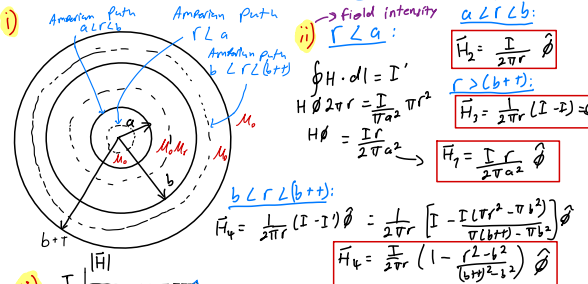 i)
Amperian path
a<r<b
Amperian path
r<a
Amperian path
b<r<(b+t)
a
μ₀
μ₀μᵣ
μ₀
μ₀
b
b+t
|H|
I
ii)
→ field intensity
r<a:
∮H·dl = I'
Hφ2πr = I/πa² πr²
Hφ = Ir/2πa²
H⃗₁ = Ir/2πa² φ̂
a<r<b:
H⃗₂ = I/2πr φ̂
r>(b+t):
H⃗₃ = 1/2πr (I-I)=0
b<r<(b+t):
H⃗₄ = 1/2πr (I-I')φ̂ = 1/2πr [I - I(πr²-πb²)/π(b+t)-πb²]φ̂
H⃗₄ = I/2πr (1 - r²-b²/(b+t)²-b²) φ̂